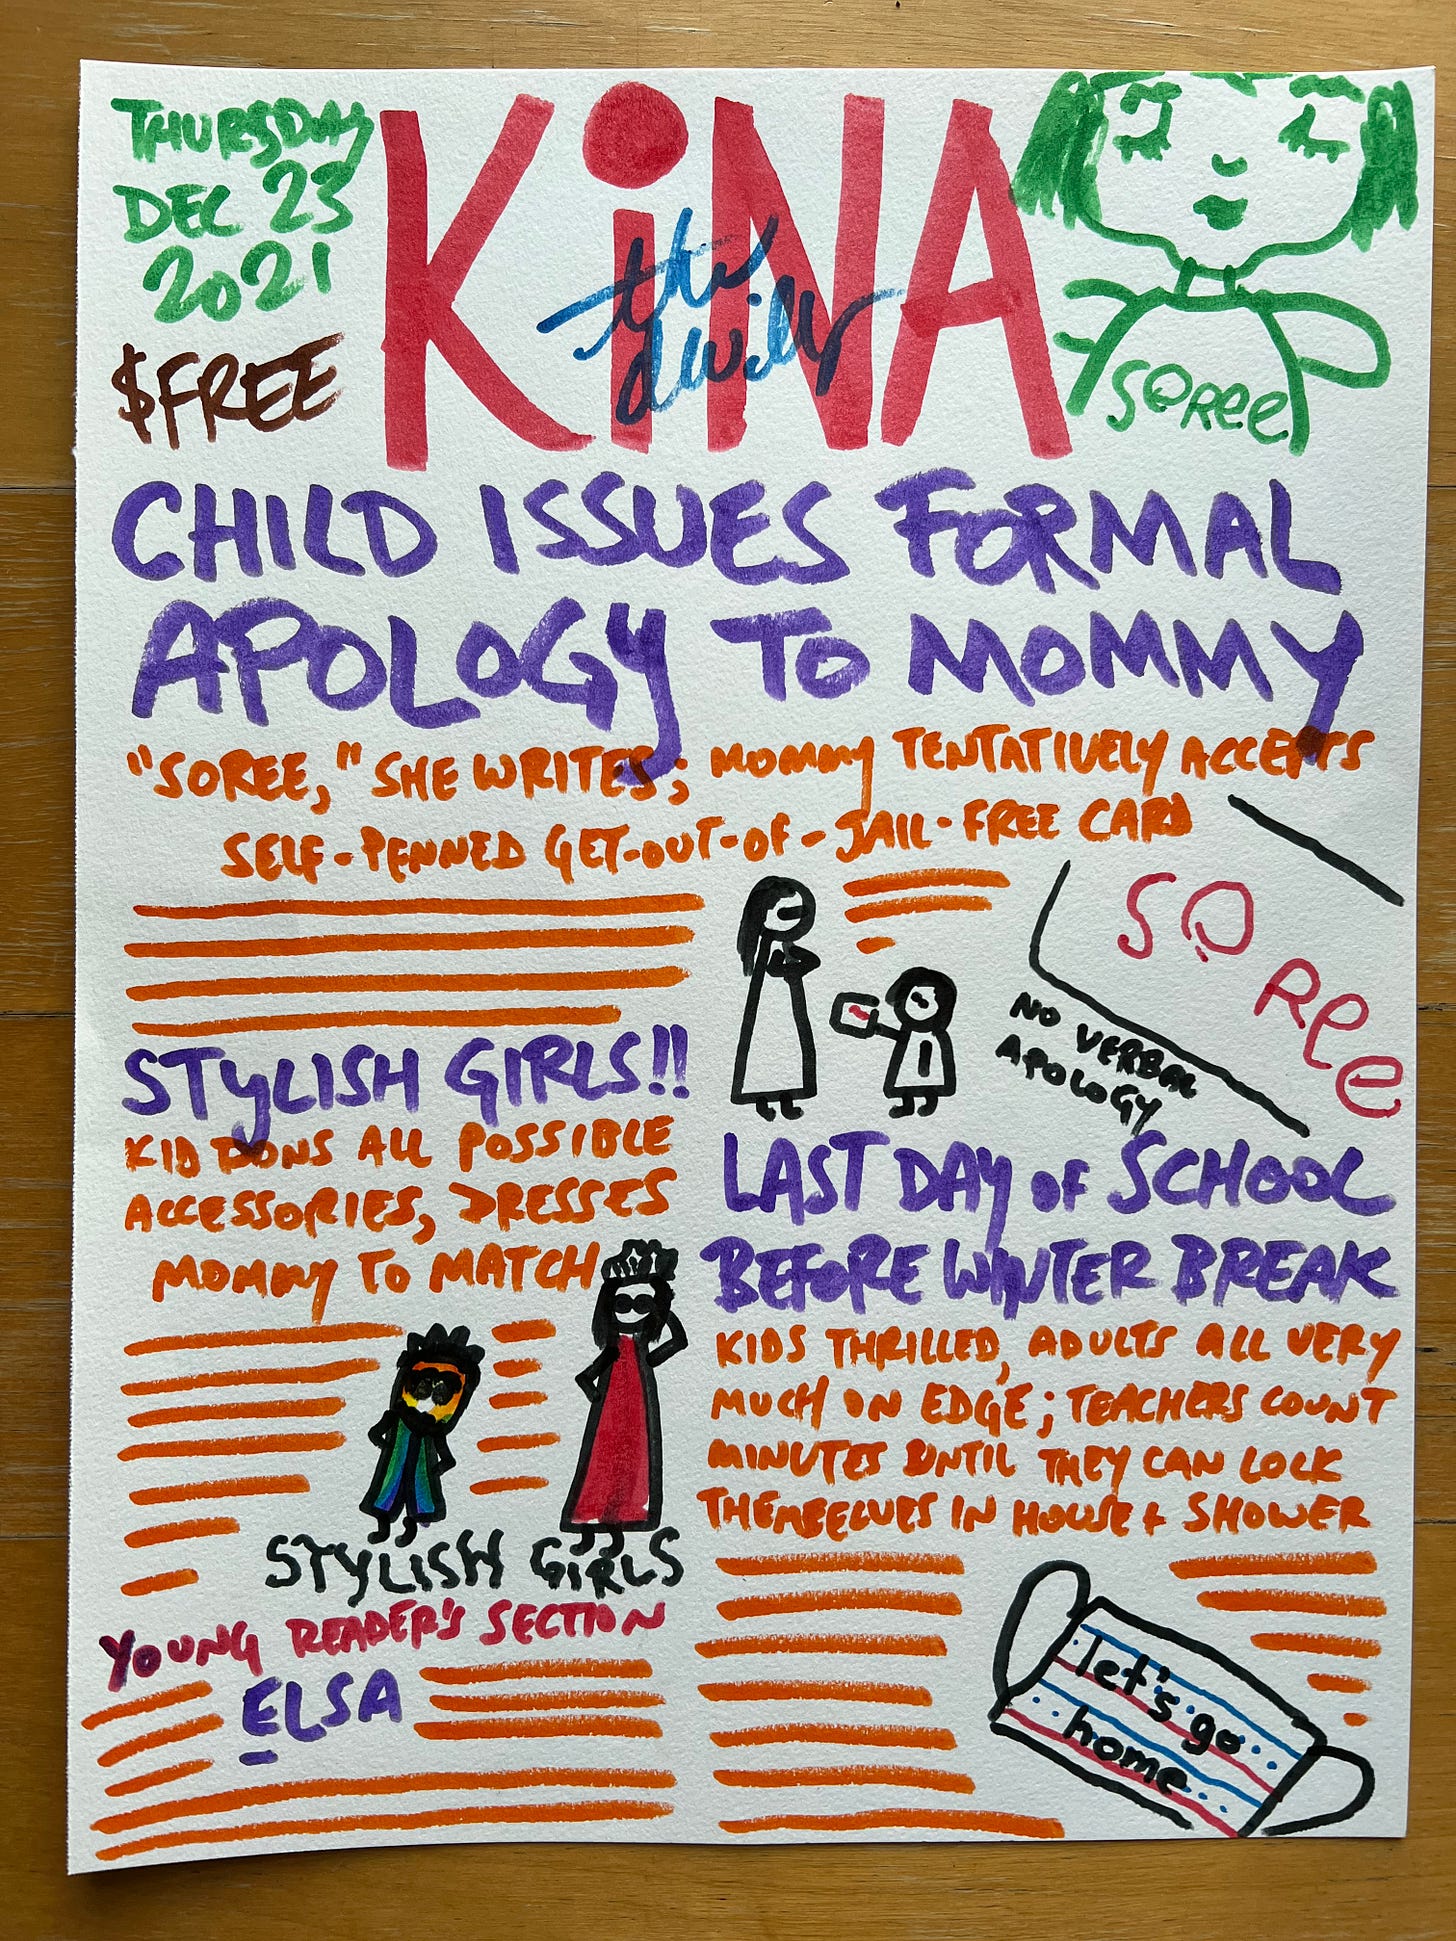 THURSDAY
DEC 23
2021
$FREE
KiNA
the dwilly
SOREE
CHILD ISSUES FORMAL
APOLOGY TO MOMMY
"SOREE," SHE WRITES; MOMMY TENTATIVELY ACCEPTS
SELF-PENNED GET-OUT-OF-JAIL-FREE CARD
SOREE
NO VERBAL
APOLOGY
STYLISH GIRLS!!
KID DONS ALL POSSIBLE
ACCESSORIES, DRESSES
MOMMY TO MATCH
STYLISH GIRLS
LAST DAY OF SCHOOL
BEFORE WINTER BREAK
KIDS THRILLED, ADULTS ALL VERY
MUCH ON EDGE; TEACHERS COUNT
MINUTES UNTIL THEY CAN LOCK
THEMSELVES IN HOUSE & SHOWER
let's go
home
YOUNG READER'S SECTION
ELSA